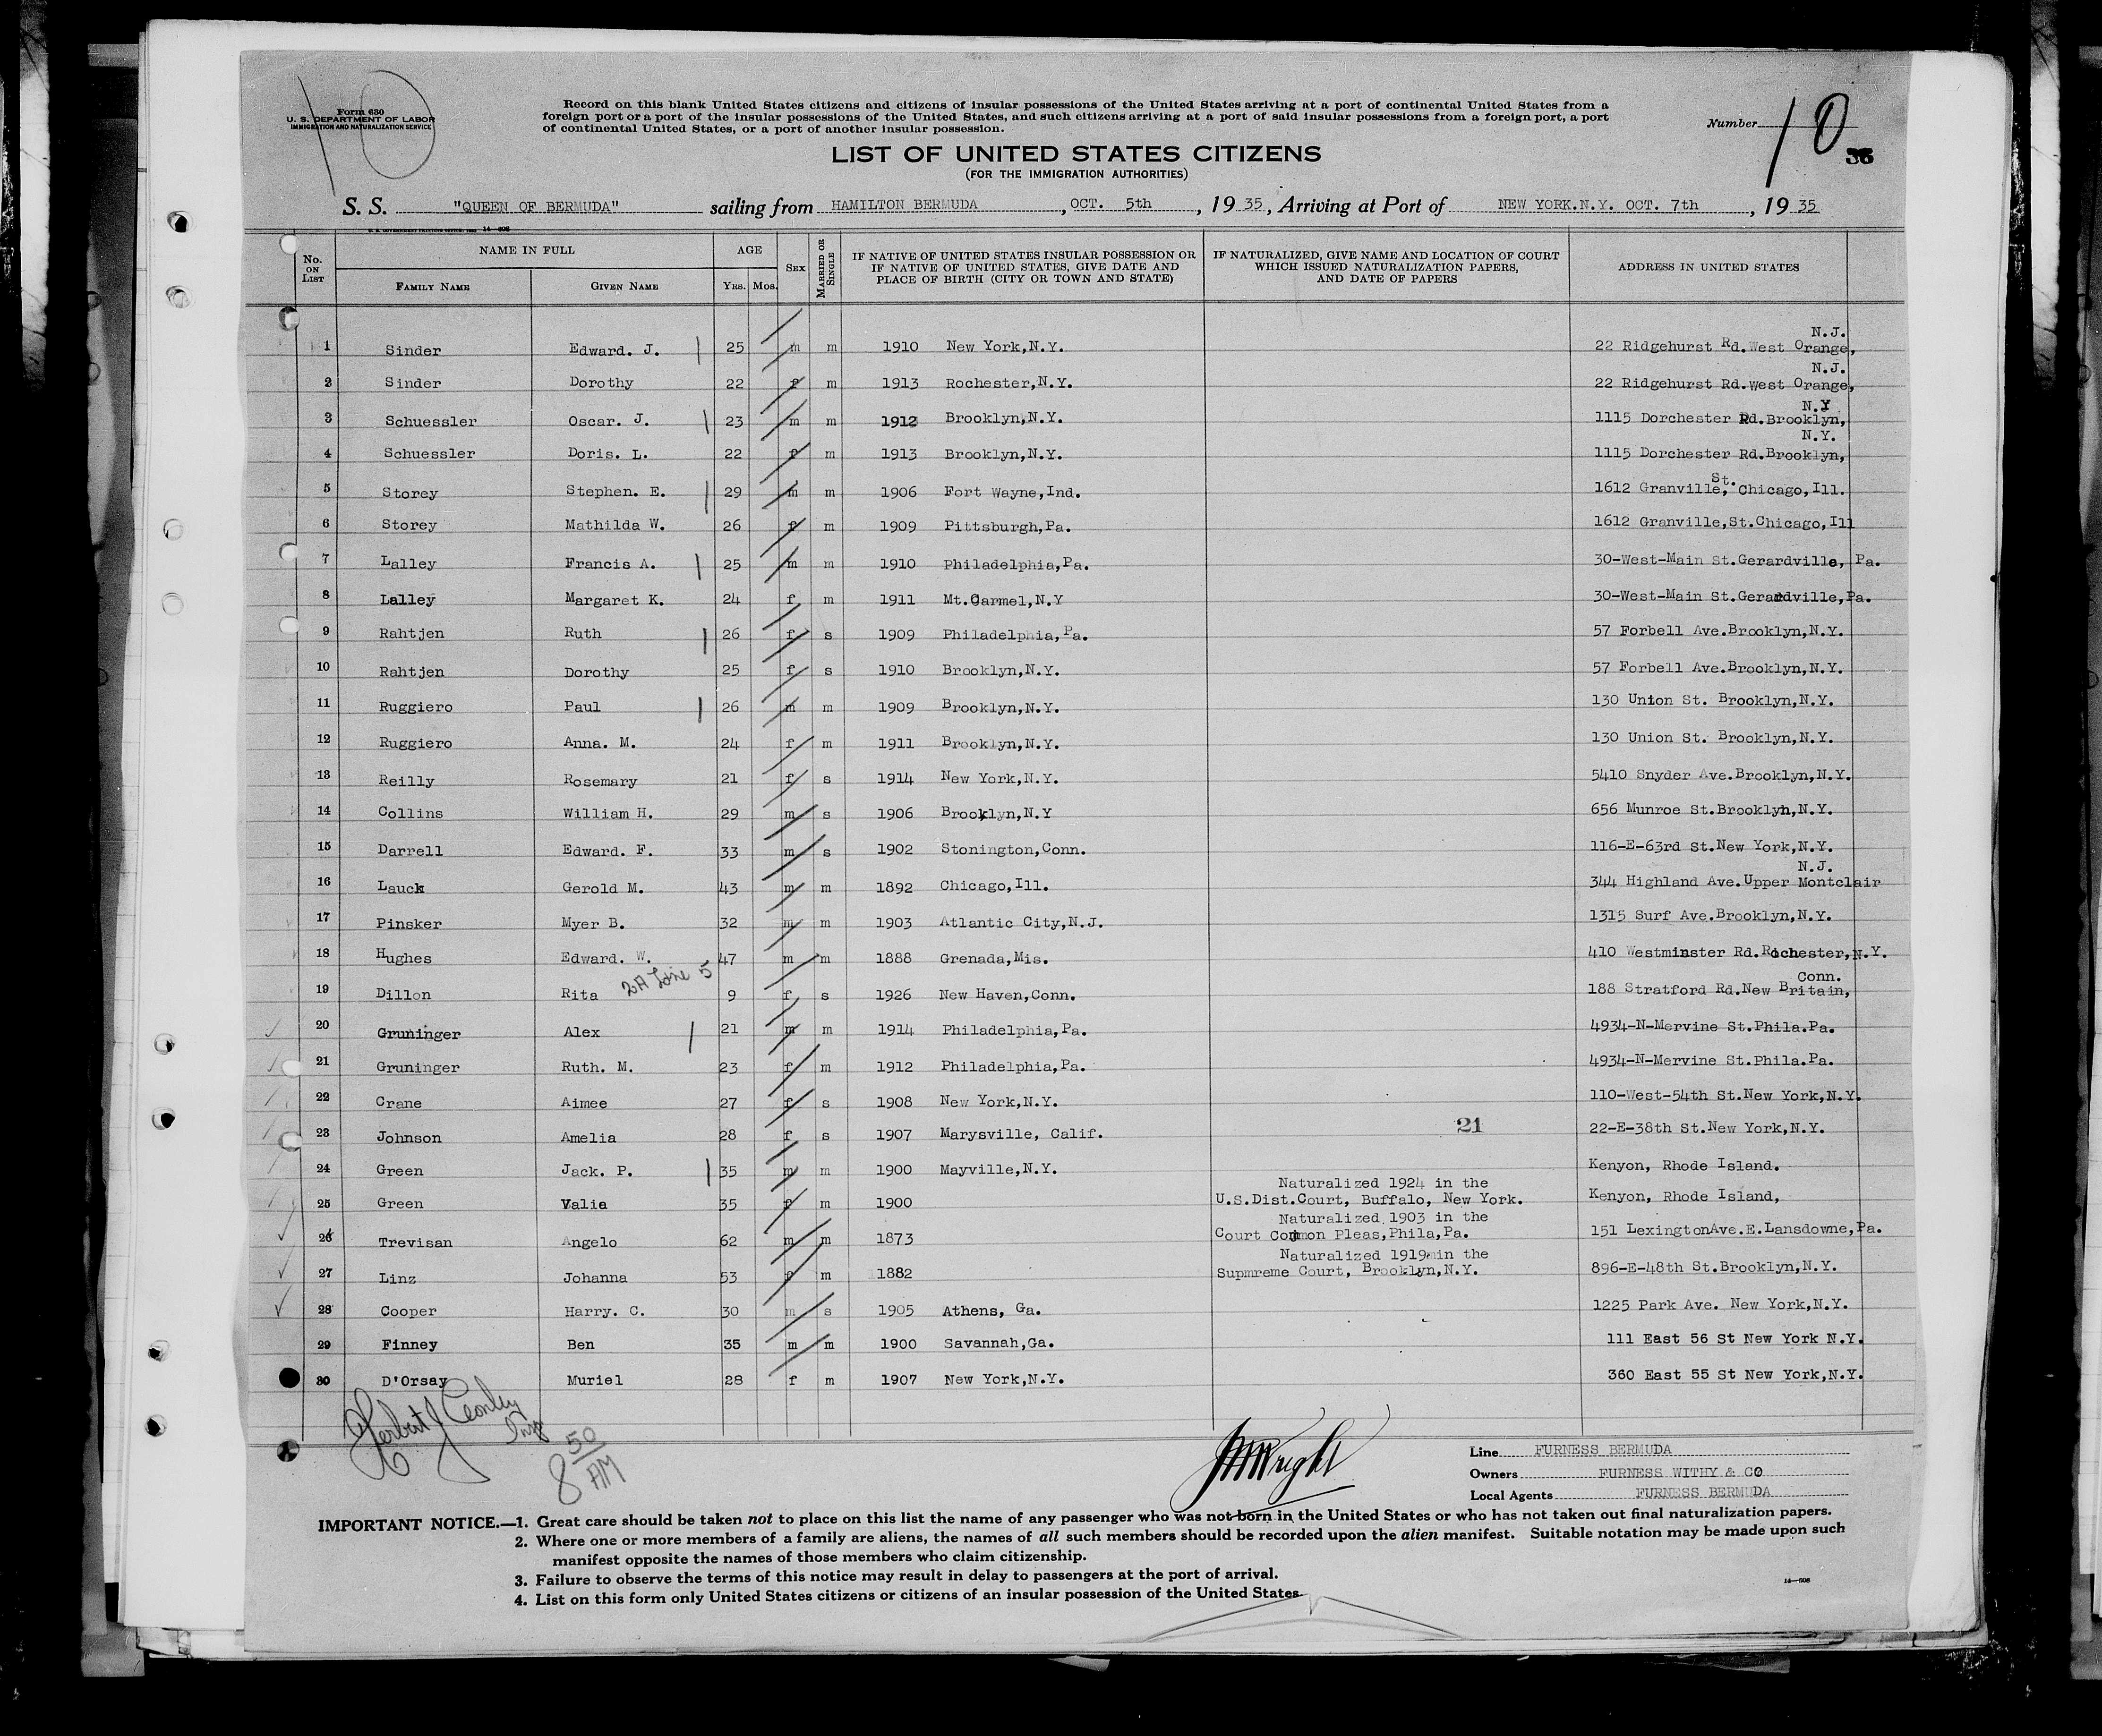 Form 630
U. S. DEPARTMENT OF LABOR
IMMIGRATION AND NATURALIZATION SERVICE
10
Record on this blank United States citizens and citizens of insular possessions of the United States arriving at a port of continental United States from a
foreign port or a port of the insular possessions of the United States, and such citizens arriving at a port of said insular possessions from a foreign port, a port
of continental United States, or a port of another insular possession.
Number 10
36
LIST OF UNITED STATES CITIZENS
(FOR THE IMMIGRATION AUTHORITIES)
S. S. "QUEEN OF BERMUDA" sailing from HAMILTON BERMUDA, OCT. 5th, 19 35, Arriving at Port of NEW YORK.N.Y. OCT. 7th, 19 35
U. S. GOVERNMENT PRINTING OFFICE: 14—608
No. ON LIST NAME IN FULL FAMILY NAME GIVEN NAME AGE YRS. MOS. SEX MARRIED OR SINGLE
IF NATIVE OF UNITED STATES INSULAR POSSESSION OR
IF NATIVE OF UNITED STATES, GIVE DATE AND
PLACE OF BIRTH (CITY OR TOWN AND STATE)
IF NATURALIZED, GIVE NAME AND LOCATION OF COURT
WHICH ISSUED NATURALIZATION PAPERS,
AND DATE OF PAPERS
ADDRESS IN UNITED STATES
1 Sinder Edward. J. 25 m m 1910 New York,N.Y. 22 Ridgehurst Rd.West Orange, N.J.
2 Sinder Dorothy 22 f m 1913 Rochester,N.Y. 22 Ridgehurst Rd.West Orange, N.J.
3 Schuessler Oscar. J. 23 m m 1912 Brooklyn,N.Y. 1115 Dorchester Rd.Brooklyn, N.Y
4 Schuessler Doris. L. 22 f m 1913 Brooklyn,N.Y. 1115 Dorchester Rd.Brooklyn, N.Y.
5 Storey Stephen. E. 29 m m 1906 Fort Wayne,Ind. 1612 Granville, St. Chicago,Ill.
6 Storey Mathilda W. 26 f m 1909 Pittsburgh,Pa. 1612 Granville,St.Chicago,Ill
7 Lalley Francis A. 25 m m 1910 Philadelphia,Pa. 30-West-Main St.Gerardville, Pa.
8 Lalley Margaret K. 24 f m 1911 Mt.Carmel,N.Y 30-West-Main St.Gerardville,Pa.
9 Rahtjen Ruth 26 f s 1909 Philadelphia,Pa. 57 Forbell Ave.Brooklyn,N.Y.
10 Rahtjen Dorothy 25 f s 1910 Brooklyn,N.Y. 57 Forbell Ave.Brooklyn,N.Y.
11 Ruggiero Paul 26 m m 1909 Brooklyn,N.Y. 130 Union St. Brooklyn,N.Y.
12 Ruggiero Anna. M. 24 f m 1911 Brooklyn,N.Y. 130 Union St. Brooklyn,N.Y.
13 Reilly Rosemary 21 f s 1914 New York,N.Y. 5410 Snyder Ave.Brooklyn,N.Y.
14 Collins William H. 29 m s 1906 Brooklyn,N.Y 656 Munroe St.Brooklyn,N.Y.
15 Darrell Edward. F. 33 m s 1902 Stonington,Conn. 116-E-63rd St.New York,N.Y.
16 Lauck Gerold M. 43 m m 1892 Chicago,Ill. 344 Highland Ave.Upper Montclair N.J.
17 Pinsker Myer B. 32 m m 1903 Atlantic City,N.J. 1315 Surf Ave.Brooklyn,N.Y.
18 Hughes Edward. W. 47 m m 1888 Grenada,Mis. 410 Westminster Rd.Rochester,N.Y.
19 Dillon Rita 2A Line 5 9 f s 1926 New Haven,Conn. 188 Stratford Rd.New Britain, Conn.
20 Gruninger Alex 21 m m 1914 Philadelphia,Pa. 4934-N-Mervine St.Phila.Pa.
21 Gruninger Ruth. M. 23 f m 1912 Philadelphia,Pa. 4934-N-Mervine St.Phila.Pa.
22 Crane Aimee 27 f s 1908 New York,N.Y. 110-West-54th St.New York,N.Y.
23 Johnson Amelia 28 f s 1907 Marysville, Calif. 21 22-E-38th St.New York,N.Y.
24 Green Jack. P. 35 m m 1900 Mayville,N.Y. Kenyon, Rhode Island.
25 Green Valie 35 f m 1900 Naturalized 1924 in the U.S.Dist.Court, Buffalo, New York. Kenyon, Rhode Island,
26 Trevisan Angelo 62 m m 1873 Naturalized 1903 in the Court Common Pleas,Phila,Pa. 151 LexingtonAve.E.Lansdowne,Pa.
27 Linz Johanna 53 f m 1882 Naturalized 1919 in the Supmreme Court, Brooklyn,N.Y. 896-E-48th St.Brooklyn,N.Y.
28 Cooper Harry. C. 30 m s 1905 Athens, Ga. 1225 Park Ave. New York,N.Y.
29 Finney Ben 35 m m 1900 Savannah,Ga. 111 East 56 St New York N.Y.
30 D'Orsay Muriel 28 f m 1907 New York,N.Y. 360 East 55 St New York,N.Y.
Herbert J
8 50 AM
Wright
Line FURNESS BERMUDA
Owners FURNESS WITHY & CO
Local Agents FURNESS BERMUDA
IMPORTANT NOTICE.—1. Great care should be taken not to place on this list the name of any passenger who was not born in the United States or who has not taken out final naturalization papers.
2. Where one or more members of a family are aliens, the names of all such members should be recorded upon the alien manifest. Suitable notation may be made upon such
manifest opposite the names of those members who claim citizenship.
3. Failure to observe the terms of this notice may result in delay to passengers at the port of arrival.
4. List on this form only United States citizens or citizens of an insular possession of the United States.
14—608